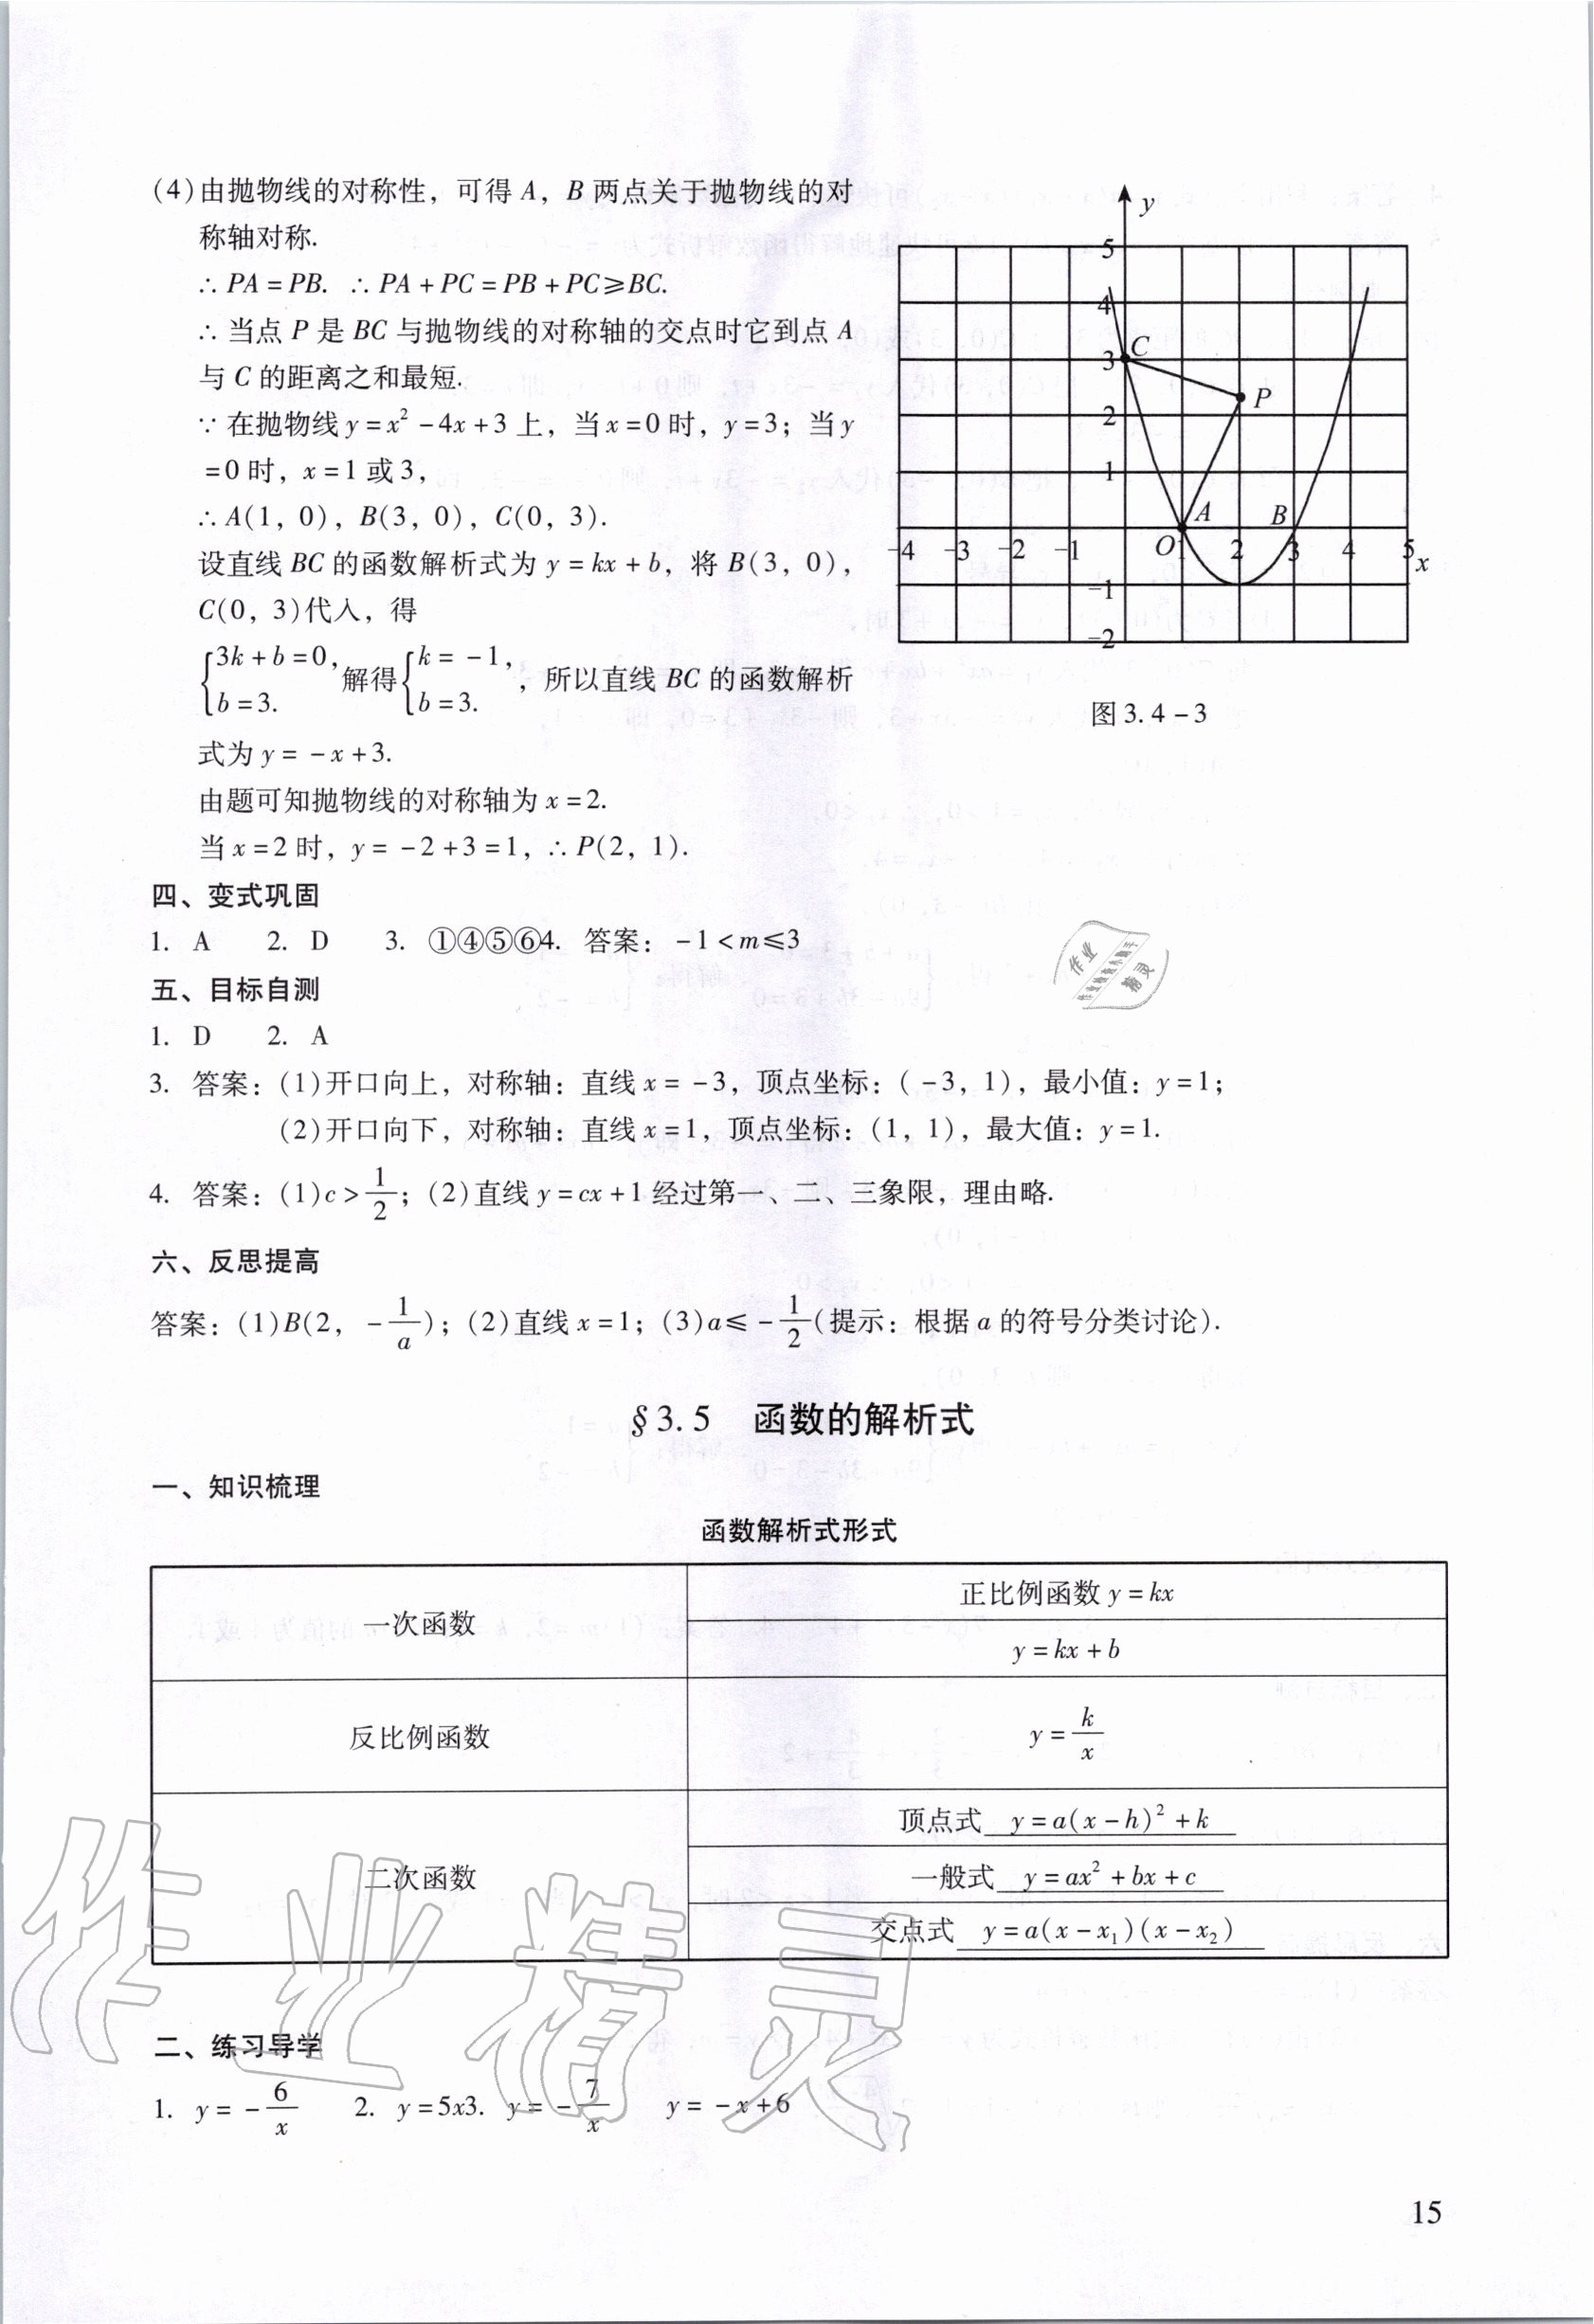 (4)由抛物线的对称性，可得 A，B 两点关于抛物线的对
称轴对称.
∴ PA = PB. ∴ PA + PC = PB + PC ⩾ BC.
∴ 当点 P 是 BC 与抛物线的对称轴的交点时它到点 A
与 C 的距离之和最短.
∵ 在抛物线 y = x² - 4x + 3 上，当 x = 0 时，y = 3；当 y
= 0 时，x = 1 或 3，
∴ A(1，0)，B(3，0)，C(0，3).
设直线 BC 的函数解析式为 y = kx + b，将 B(3，0)，
C(0，3)代入，得
{3k + b = 0, b = 3. 解得 {k = -1, b = 3. ，所以直线 BC 的函数解析
式为 y = -x + 3.
由题可知抛物线的对称轴为 x = 2.
当 x = 2 时，y = -2 + 3 = 1，∴ P(2，1).
y
5
4
3 C
P
2
1
A B
-4 -3 -2 -1 O 1 2 3 4 5 x
-1
-2
图 3.4-3
四、变式巩固
1. A 2. D 3. ①④⑤⑥4. 答案：-1 < m ⩽ 3
五、目标自测
1. D 2. A
3. 答案：(1)开口向上，对称轴：直线 x = -3，顶点坐标：(-3，1)，最小值：y = 1；
(2)开口向下，对称轴：直线 x = 1，顶点坐标：(1，1)，最大值：y = 1.
4. 答案：(1)c > 1/2；(2)直线 y = cx + 1 经过第一、二、三象限，理由略.
六、反思提高
答案：(1)B(2，-1/a)；(2)直线 x = 1；(3)a ⩽ -1/2(提示：根据 a 的符号分类讨论).
§3.5 函数的解析式
一、知识梳理
函数解析式形式
一次函数
正比例函数 y = kx
y = kx + b
反比例函数
y = k/x
二次函数
顶点式 y = a(x - h)² + k
一般式 y = ax² + bx + c
交点式 y = a(x - x₁)(x - x₂)
二、练习导学
1. y = -6/x 2. y = 5x3. y = -7/x y = -x + 6
15
作业精灵
作业
精灵